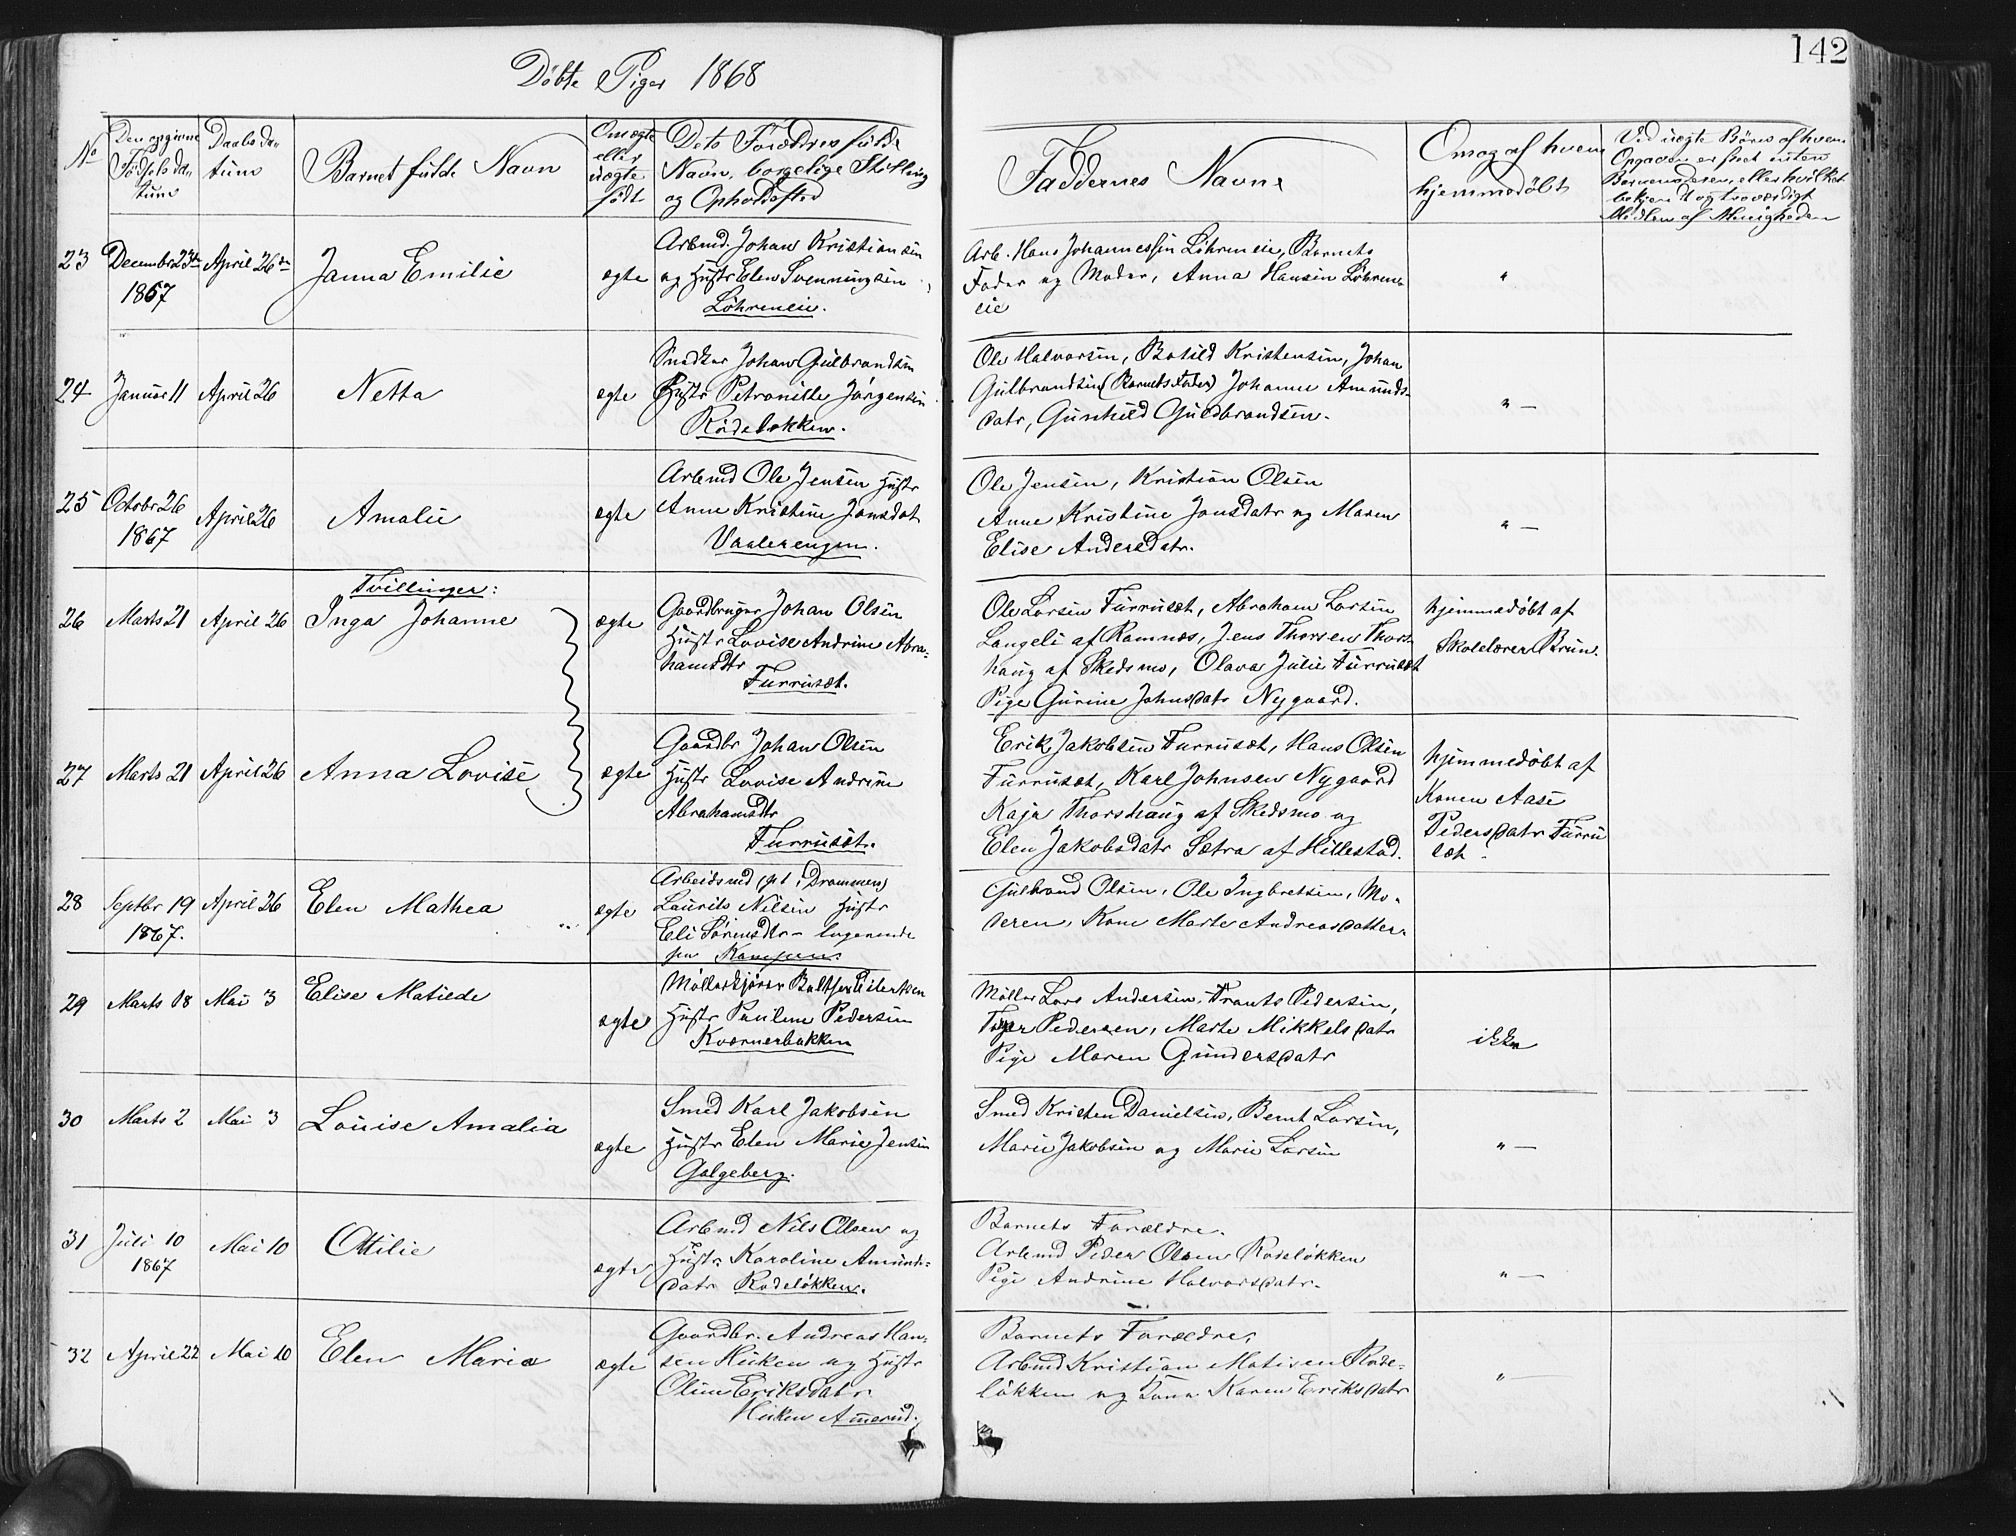 142
Døbte Piger 1868
No
Den opgivne Fødselsdatum
Daabsdatum
Barnet fulde Navn
Om ægte eller uægte født
Dets Forældres fulde Navn, borgelige Stilling og Opholdssted
Faddernes Navne
Om og af hvem hjemmedøbt
Ved uægte Børn af hvem Opgaven er skeet enten Barnefaderen, eller hvilket bekjendt og troværdigt Medlem af Menigheden
23 Decembr 23de 1867 April 26de Janna Emilie ægte
Arbmd. Johan Kristiansen
og Hustr Elen Svenningsen
Löhreneie.
Arb. Hans Johannessen Löhreneie, Barnets
Fader og Moder, Anna Hansen Löhren-
eie
"
24 Januar 11 April 26 Netta ægte
Snedker Johan Gulbrandsen
Hustr Petronille Jørgensen
Rodeløkken.
Ole Halvorsen, Botild Kristensen, Johan
Gulbrandsen (Barnets Fader) Johanne Amunds-
datr, Gunhild Guldbrandsen.
" —
25 Octobr 26 1867 April 26 Amalie ægte
Arbmd Ole Jensen Hustr
Anne Kristine Jonsdat
Vaalerengen.
Ole Jensen, Kristian Olsen
Anne Kristine Jonsdatr og Maren
Elise Andersdatr.
" —
Tvillinger:
26 Marts 21 April 26 Inga Johanne ægte
Gaardbruger Johan Olsen
Hustr Lovise Andrine Abra-
hamsdtr
Furruset.
Ole Larsen Furruset, Abraham Larsen
Langeli af Ramnes, Jens Thorsen Thors-
haug af Skedsmo, Olava Julie Furruset
Pige Gurine Johnsdatr Nygaard.
hjemmedøbt af
Skolelærer Brun.
27 Marts 21 April 26 Anna Lovise ægte
Gaardbr Johan Olsen
Hustr Lovise Andrine
Abrahamsdtr
Furruset.
Erik Jakobsen Furruset, Hans Olsen
Furruset, Karl Johnsen Nygaard
Kaja Thorshaug af Skedsmo og
Elen Jakobsdatr Sætra af Hillestad.
hjemmedøbt af
Konen Aase
Pedersdatr Furru
set.
28 Septbr 19 1867. April 26 Elen Mathea ægte
Arbeidsmd (pt i Drammen)
Laurits Nilsen Hustr
Eli Sørensdtr – logerende
paa Kampen.
Gulbrand Olsen, Ole Ingbretsen, Mo-
deren, Kone Marte Andreasdatter.
29 Marts 18 Mai 3 Elise Matilde ægte
Møllerkjører
Hustr Pauline Pedersen
Kværnerbakken
Møller Lars Andersen, Frants Pedersen,
Pedersen, Marte Mikkelsdatr
Pige Maren Gundersdatr
ikke
30 Marts 2 Mai 3 Louise Amalia ægte
Smed Karl Jakobsen
Hustr Elen Marie Jensen
Galgeberg.
Smed Kristen Danielsen, Bernt Larsen,
Marie Jakobsen og Marie Larsen
" —
31 Juli 10 1867 Mai 10 Ottilie ægte
Arbmd Nils Olsen og
Hustr Karoline Amunds-
datr Rodeløkken.
Barnets Forældre.
Arbmd Peder Olsen Rodeløkken
Pige Andrine Halvorsdatr.
" —
32 April 22 Mai 10 Elen Maria ægte
Gaardbr. Andreas Han-
sen Heiken og Hustr
Oline Eriksdatr
Heiken Amerud.
Barnets Forældre,
Arbmd Kristian Matisen Rode-
løkken og Kone Karen Eriksdatr
" —